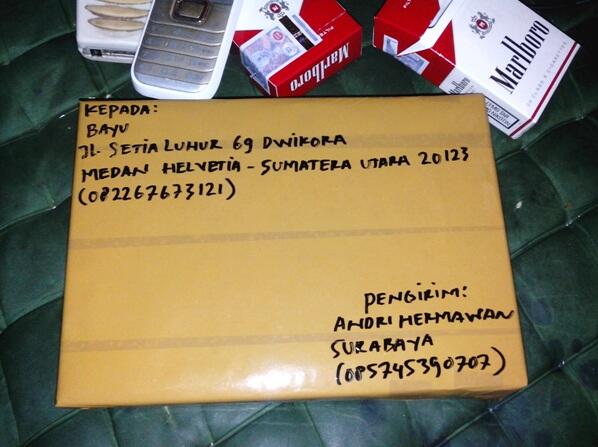 Marlboro
FILTE
Marlboro
KEPADA:
BAYU
JL. SETIA LUHUR 69 DWIKORA
MEDAN HELVETIA - SUMATERA UTARA 20123
(082267673121)
PENGIRIM:
ANDRI HERMAWAN
SURABAYA
(085745390707)